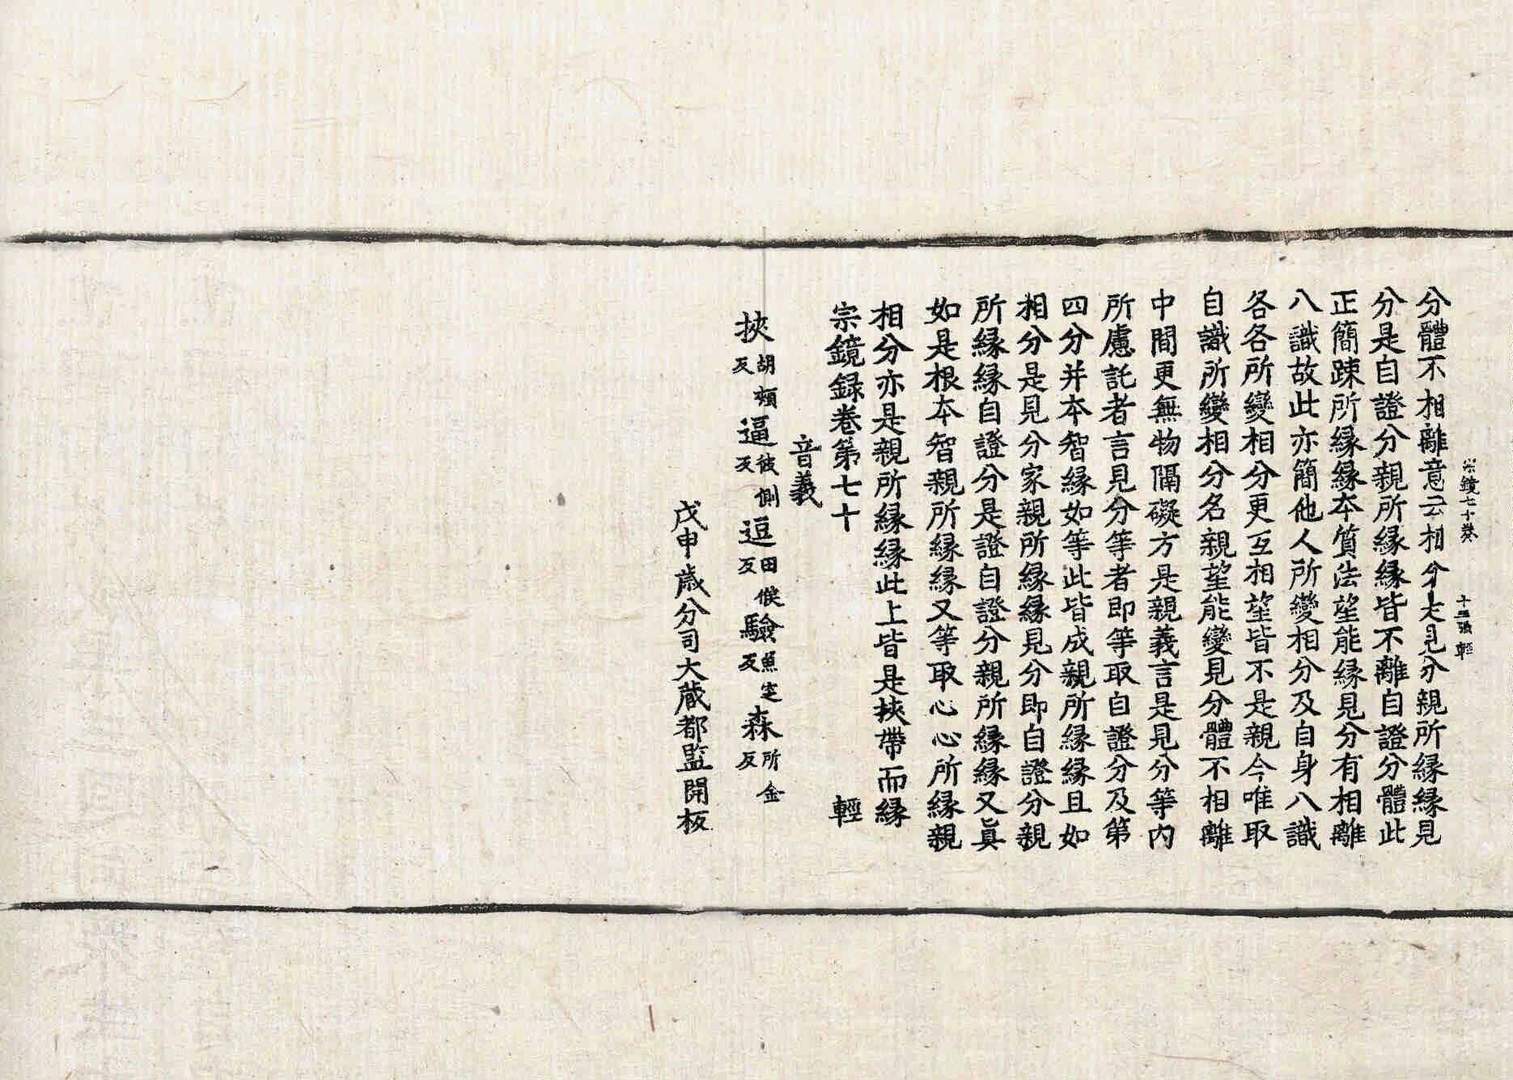 宗鏡七十卷 十三張 輕
分體不相離意云相分是見分親所縁縁見
分是自證分親所縁縁皆不離自證分體此
正簡踈所縁縁本質法望能縁見分有相離
八識故此亦簡他人所變相分及自身八識
各各所變相分更互相望皆不是親今唯取
自識所變相分名親望能變見分體不相離
中間更無物隔礙方是親義言是見分等内
所慮託者言見分等者即等取自證分及第
四分并本智縁如等此皆成親所縁縁且如
相分是見分家親所縁縁見分即自證分親
所縁縁自證分是證自證分親所縁縁又眞
如是根本智親所縁縁又等取心心所縁親
相分亦是親所縁縁此上皆是挾帶而縁
宗鏡録卷第七十 輕
音義
挾胡頰反 逼彼側反 逗田候反 驗魚窆反 森所金反
戊申歳分司大藏都監開板